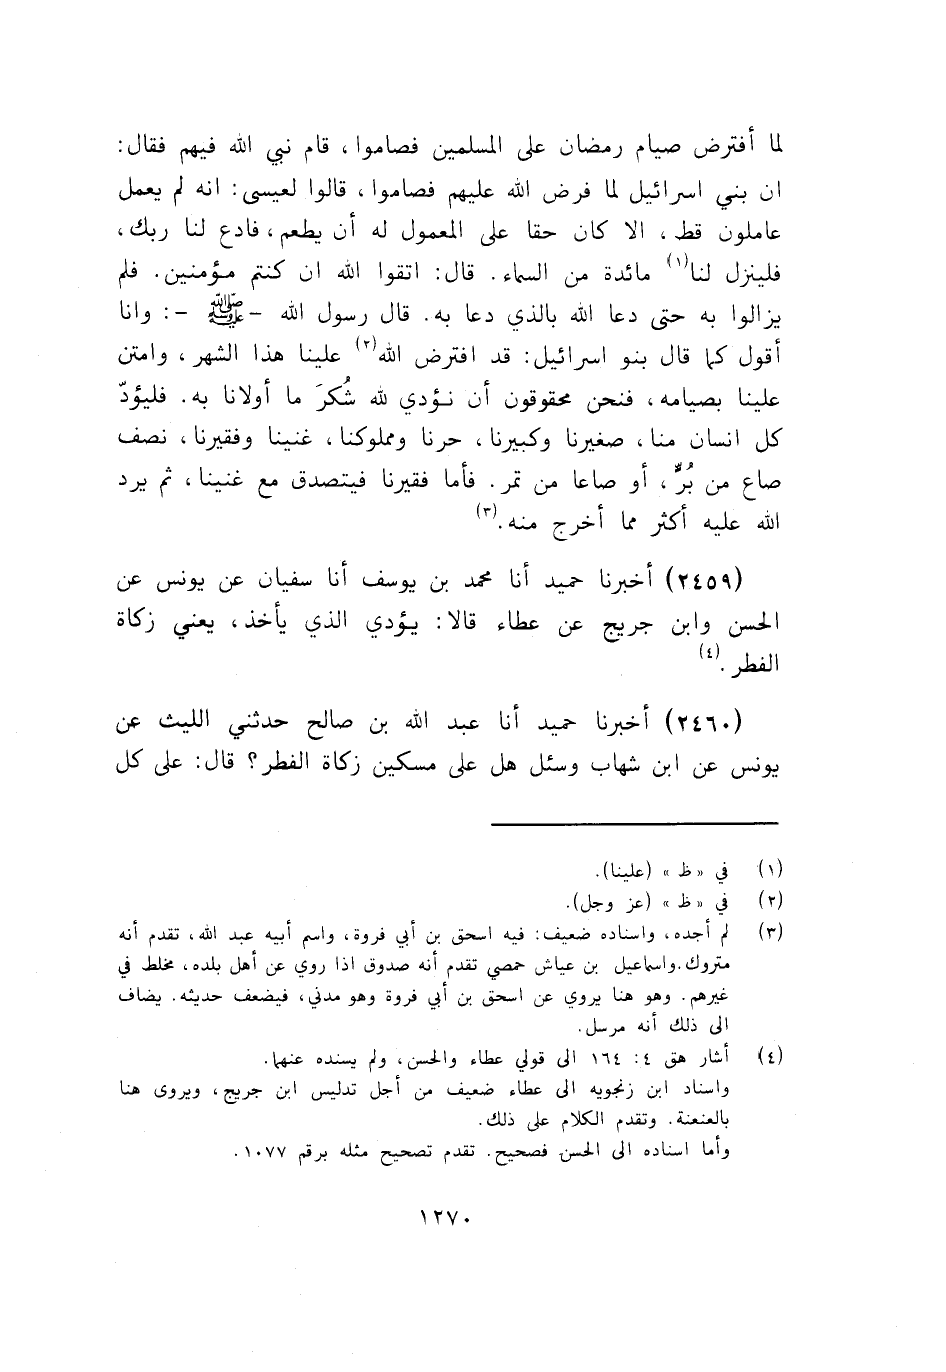 لما أفترض صيام رمضان على المسلمين فصاموا، قام نبي الله فيهم فقال:
ان بني اسرائيل لما فرض الله عليهم فصاموا، قالوا لعيسى: انه لم يعمل
عاملون قط، الا كان حقا على المعمول له أن يطعم، فادع لنا ربك،
فلينزل لنا(١) مائدة من السماء. قال: اتقوا الله ان كنتم مؤمنين. فلم
يزالوا به حتى دعا الله بالذي دعا به. قال رسول الله -ﷺ -: وانا
أقول كما قال بنو اسرائيل: قد افترض الله(٢) علينا هذا الشهر، وامتن
علينا بصيامه، فنحن محقوقون أن نؤدي لله شُكرَ ما أولانا به. فليؤدّ
كل انسان منا، صغيرنا وكبيرنا، حرنا ومملوكنا، غنينا وفقيرنا، نصف
صاع من بُرٍّ، أو صاعا من تمر. فأما فقيرنا فيتصدق مع غنينا، ثم يرد
الله عليه أكثر مما أخرج منه.(٣)
(٢٤٥٩) أخبرنا حميد أنا محمد بن يوسف أنا سفيان عن يونس عن
الحسن وابن جريج عن عطاء قالا: يؤدي الذي يأخذ، يعني زكاة
الفطر.(٤)
(٢٤٦٠) أخبرنا حميد أنا عبد الله بن صالح حدثني الليث عن
يونس عن ابن شهاب وسئل هل على مسكين زكاة الفطر؟ قال: على كل
(١) في « ظ » (علينا).
(٢) في « ظ » (عز وجل).
(٣) لم أجده، واسناده ضعيف: فيه اسحق بن أبي فروة، واسم أبيه عبد الله، تقدم أنه
متروك.واسماعيل بن عياش حمصي تقدم أنه صدوق اذا روي عن أهل بلده، مخلط في
غيرهم. وهو هنا يروي عن اسحق بن أبي فروة وهو مدني، فيضعف حديثه. يضاف
الى ذلك أنه مرسل.
(٤) أشار هق ٤: ١٦٤ الى قولي عطاء والحسن، ولم يسنده عنهما.
واسناد ابن زنجويه الى عطاء ضعيف من أجل تدليس ابن جريج، ويروى هنا
بالعنعنة. وتقدم الكلام على ذلك.
وأما اسناده الى الحسن فصحيح. تقدم تصحيح مثله برقم ١٠٧٧.
١٢٧٠